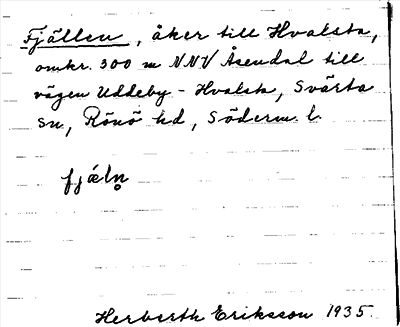 Fjällen, åker till Hvalsta,
omkr. 300 m NNV Åsendal till
vägen Uddeby - Hvalsta, Svärta
sn., Rönö hd, Söderm. l.
fjæln̥
Herberth Eriksson 1935.